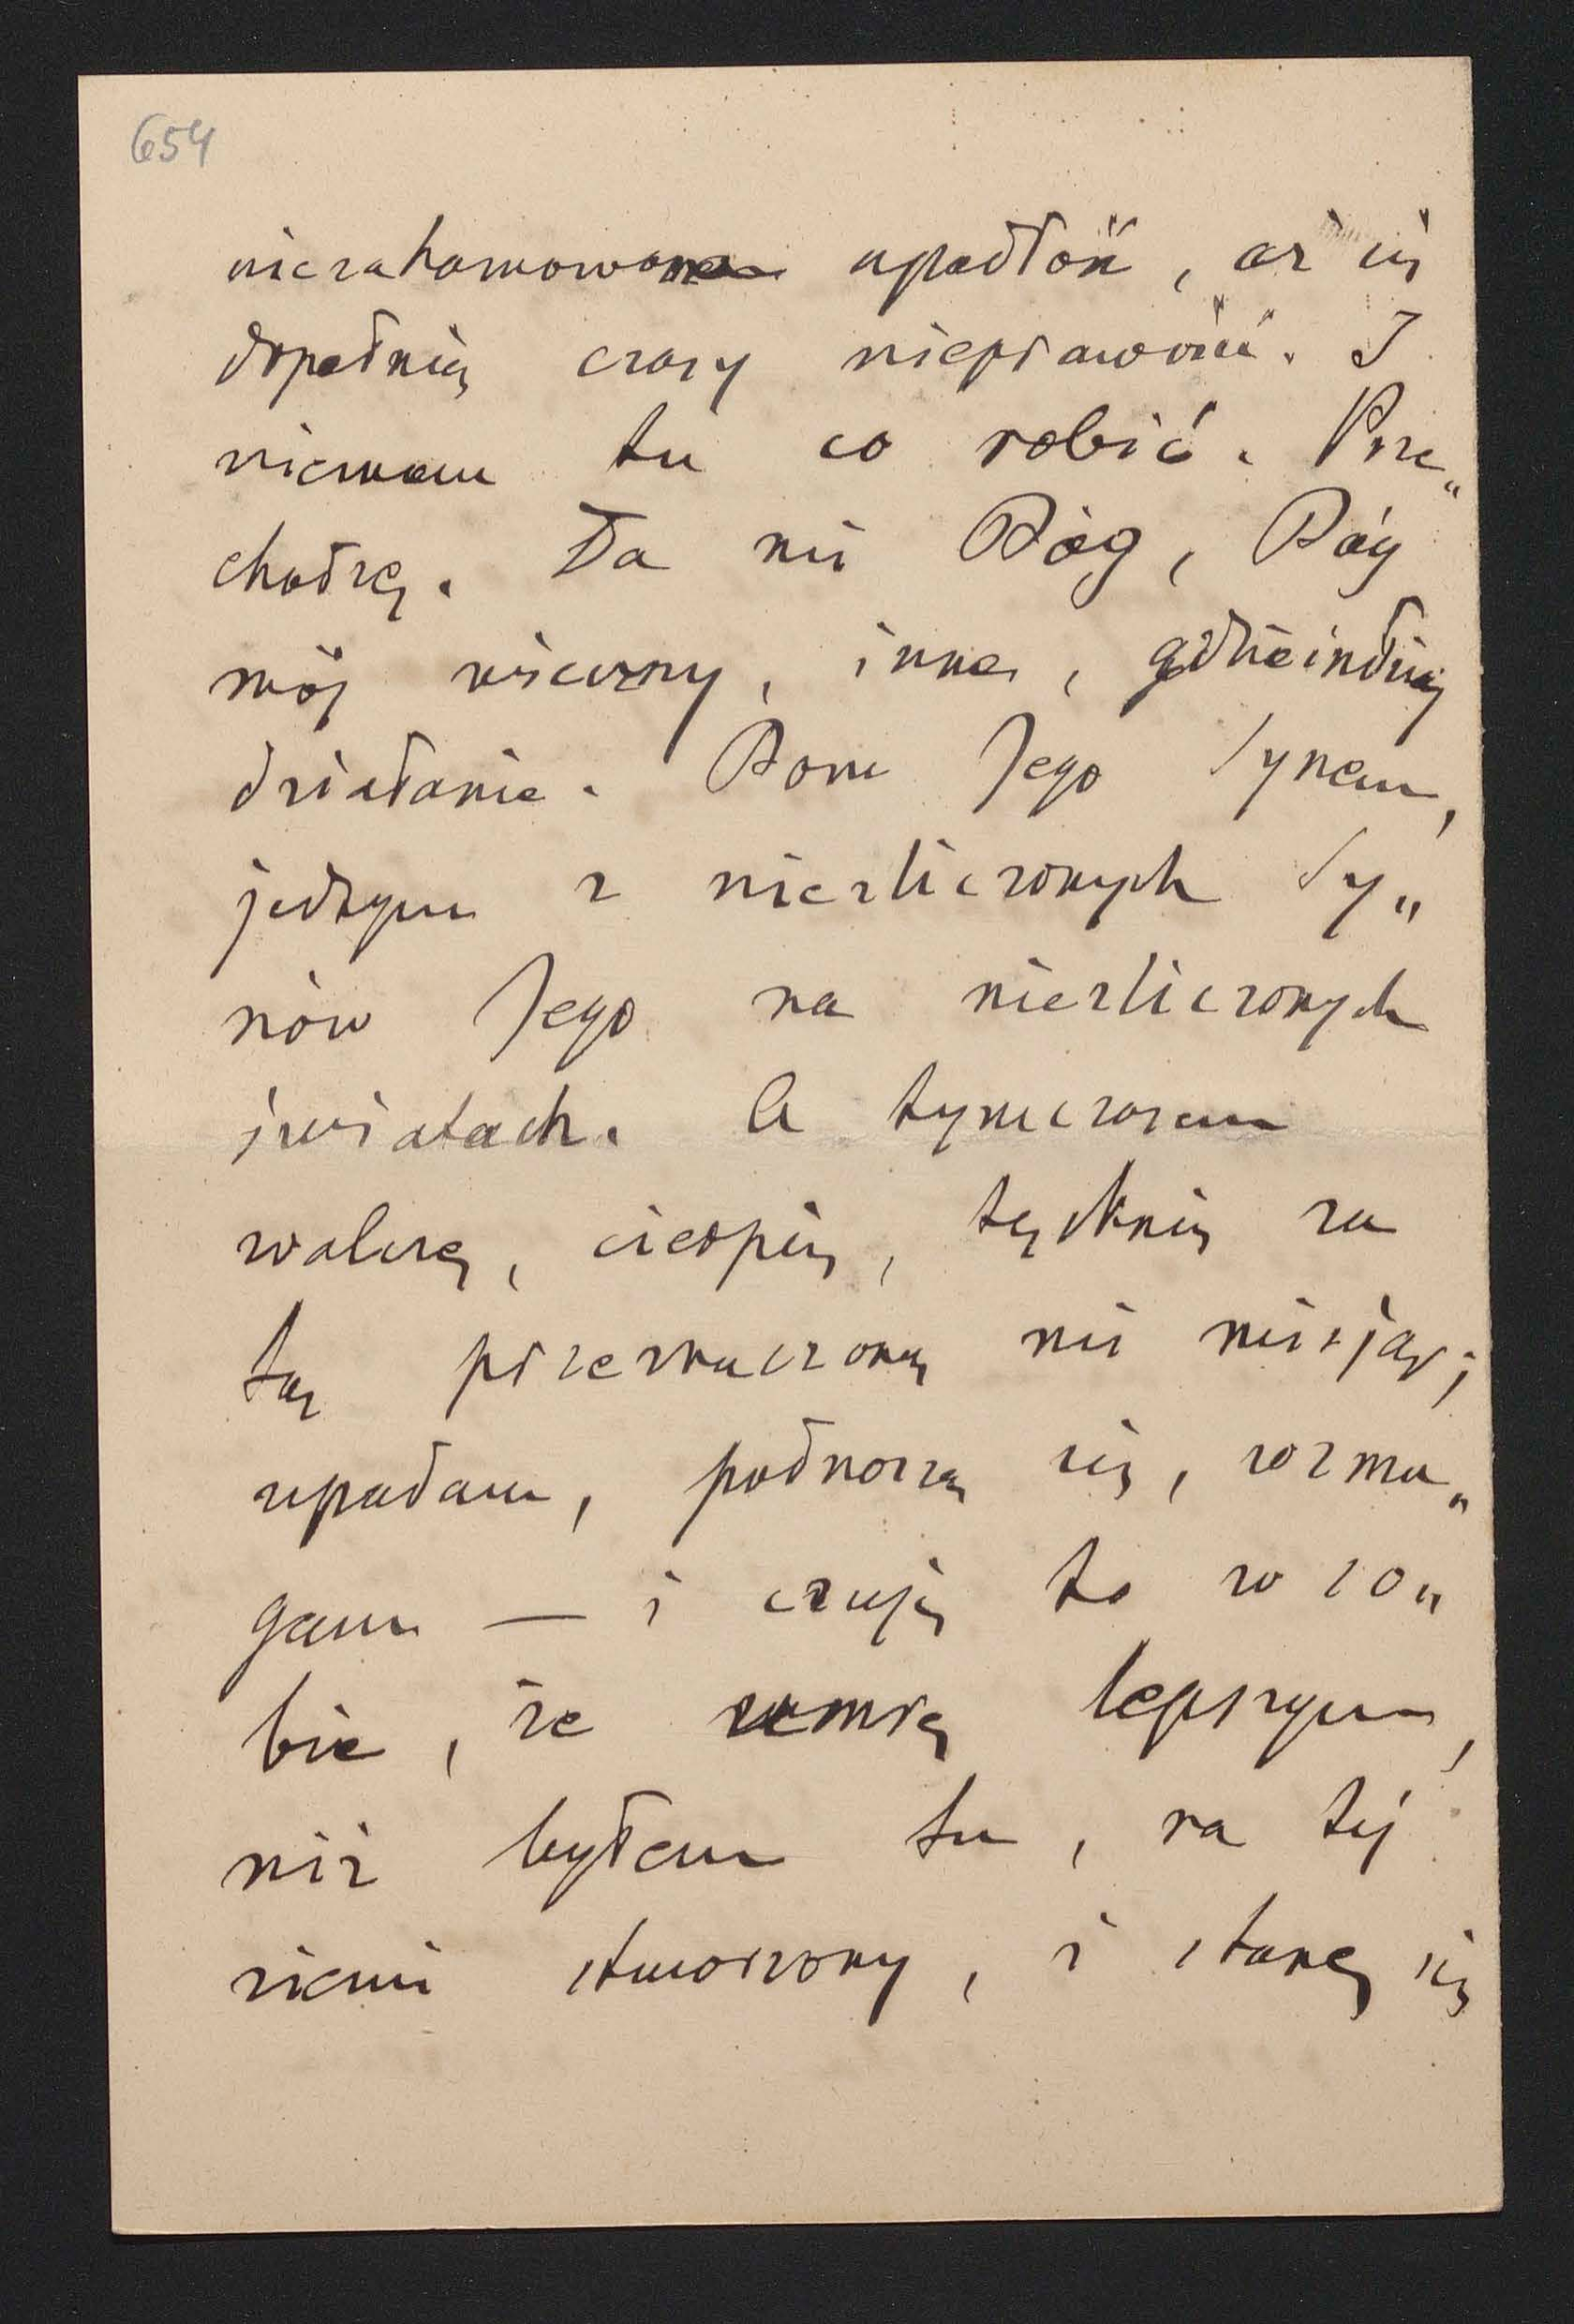 654
niezahamowana upadłość, aż się
dopełnią czasy nieprawości. I
niemam tu co robić. Prze„
chodzę. Da mi Bóg, Bóg
mój wieczny, inne, gdzieindziej
działanie. Bom Jego Synem,
jednym z niezliczonych Sy„
nów Jego na niezliczonych
światach. A tymczasem
walczę, cierpię, tęsknię za
tą przeznaczoną mi misją;
upadam, podnoszę się, rozma„
gam — i czuję to w so„
bie, że umrę lepszym,
niż byłem tu, na tej
ziemi stworzony, i stanę się